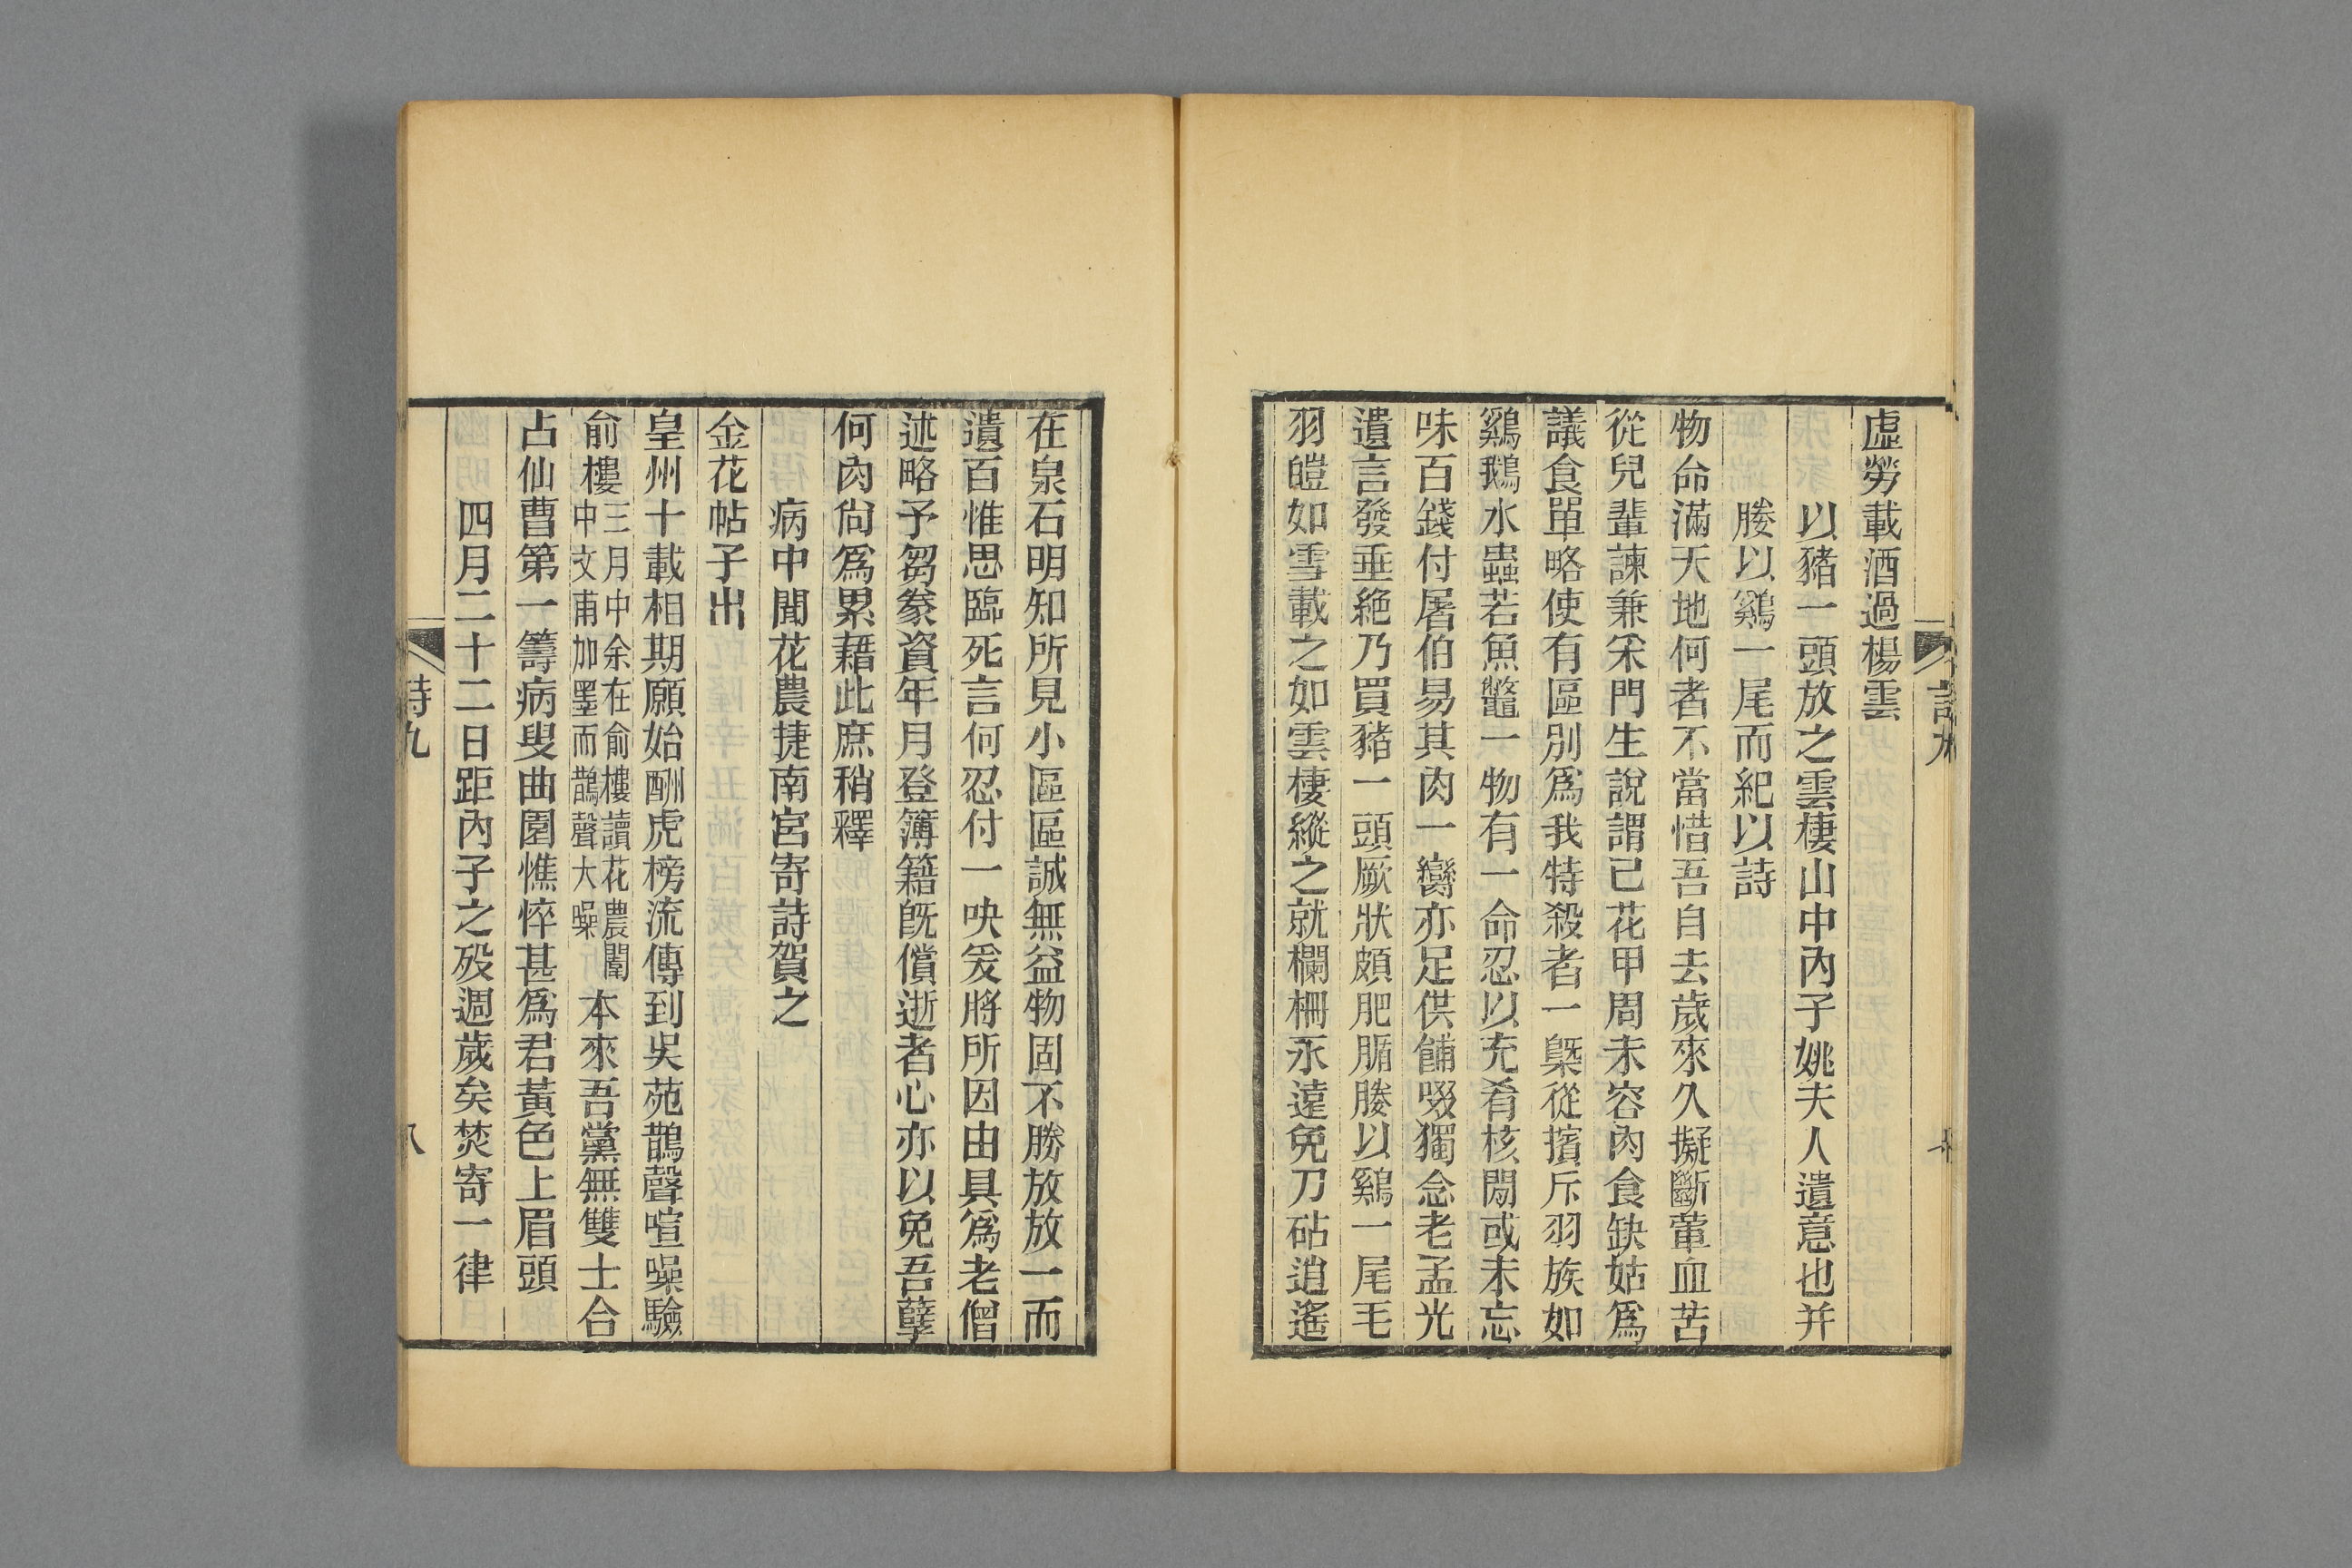 虛勞載酒過楊雲
以豬一頭放之雲棲山中內子姚夫人遺意也并
媵以雞一尾而紀以詩
物命滿天地何者不當惜吾自去歲來久擬斷葷血苦
從兒輩諫兼采門生說謂己花甲周未容肉食缺姑爲
議食單略使有區別爲我特殺者一槩從擯斥羽族如
鷄鵝水蟲若魚鼈一物有一命忍以充肴核閒或未忘
味百錢付屠伯易其肉一臠亦足供餔啜獨念老孟光
遺言發垂絕乃買豬一頭厥狀頗肥腯媵以鷄一尾毛
羽皚如雪載之如雲棲縱之就欄柵永遠免刀砧逍遙
在泉石明知所見小區區誠無益物固不勝放放一而
遺百惟思臨死言何忍付一吷爰將所因由具爲老僧
述略予芻豢資年月登簿籍既償逝者心亦以免吾孽
何肉尙爲累藉此庶稍釋
病中聞花農捷南宮寄詩賀之
金花帖子出
皇州十載相期願始酬虎榜流傳到吳苑鵲聲喧噪驗
俞樓三月中余在俞樓讀花農闈中文甫加墨而鵲聲大噪本來吾黨無雙士合
占仙曹第一籌病叟曲園憔悴甚爲君黃色上眉頭
四月二十二日距內子之歿週歲矣焚寄一律
詩九
八